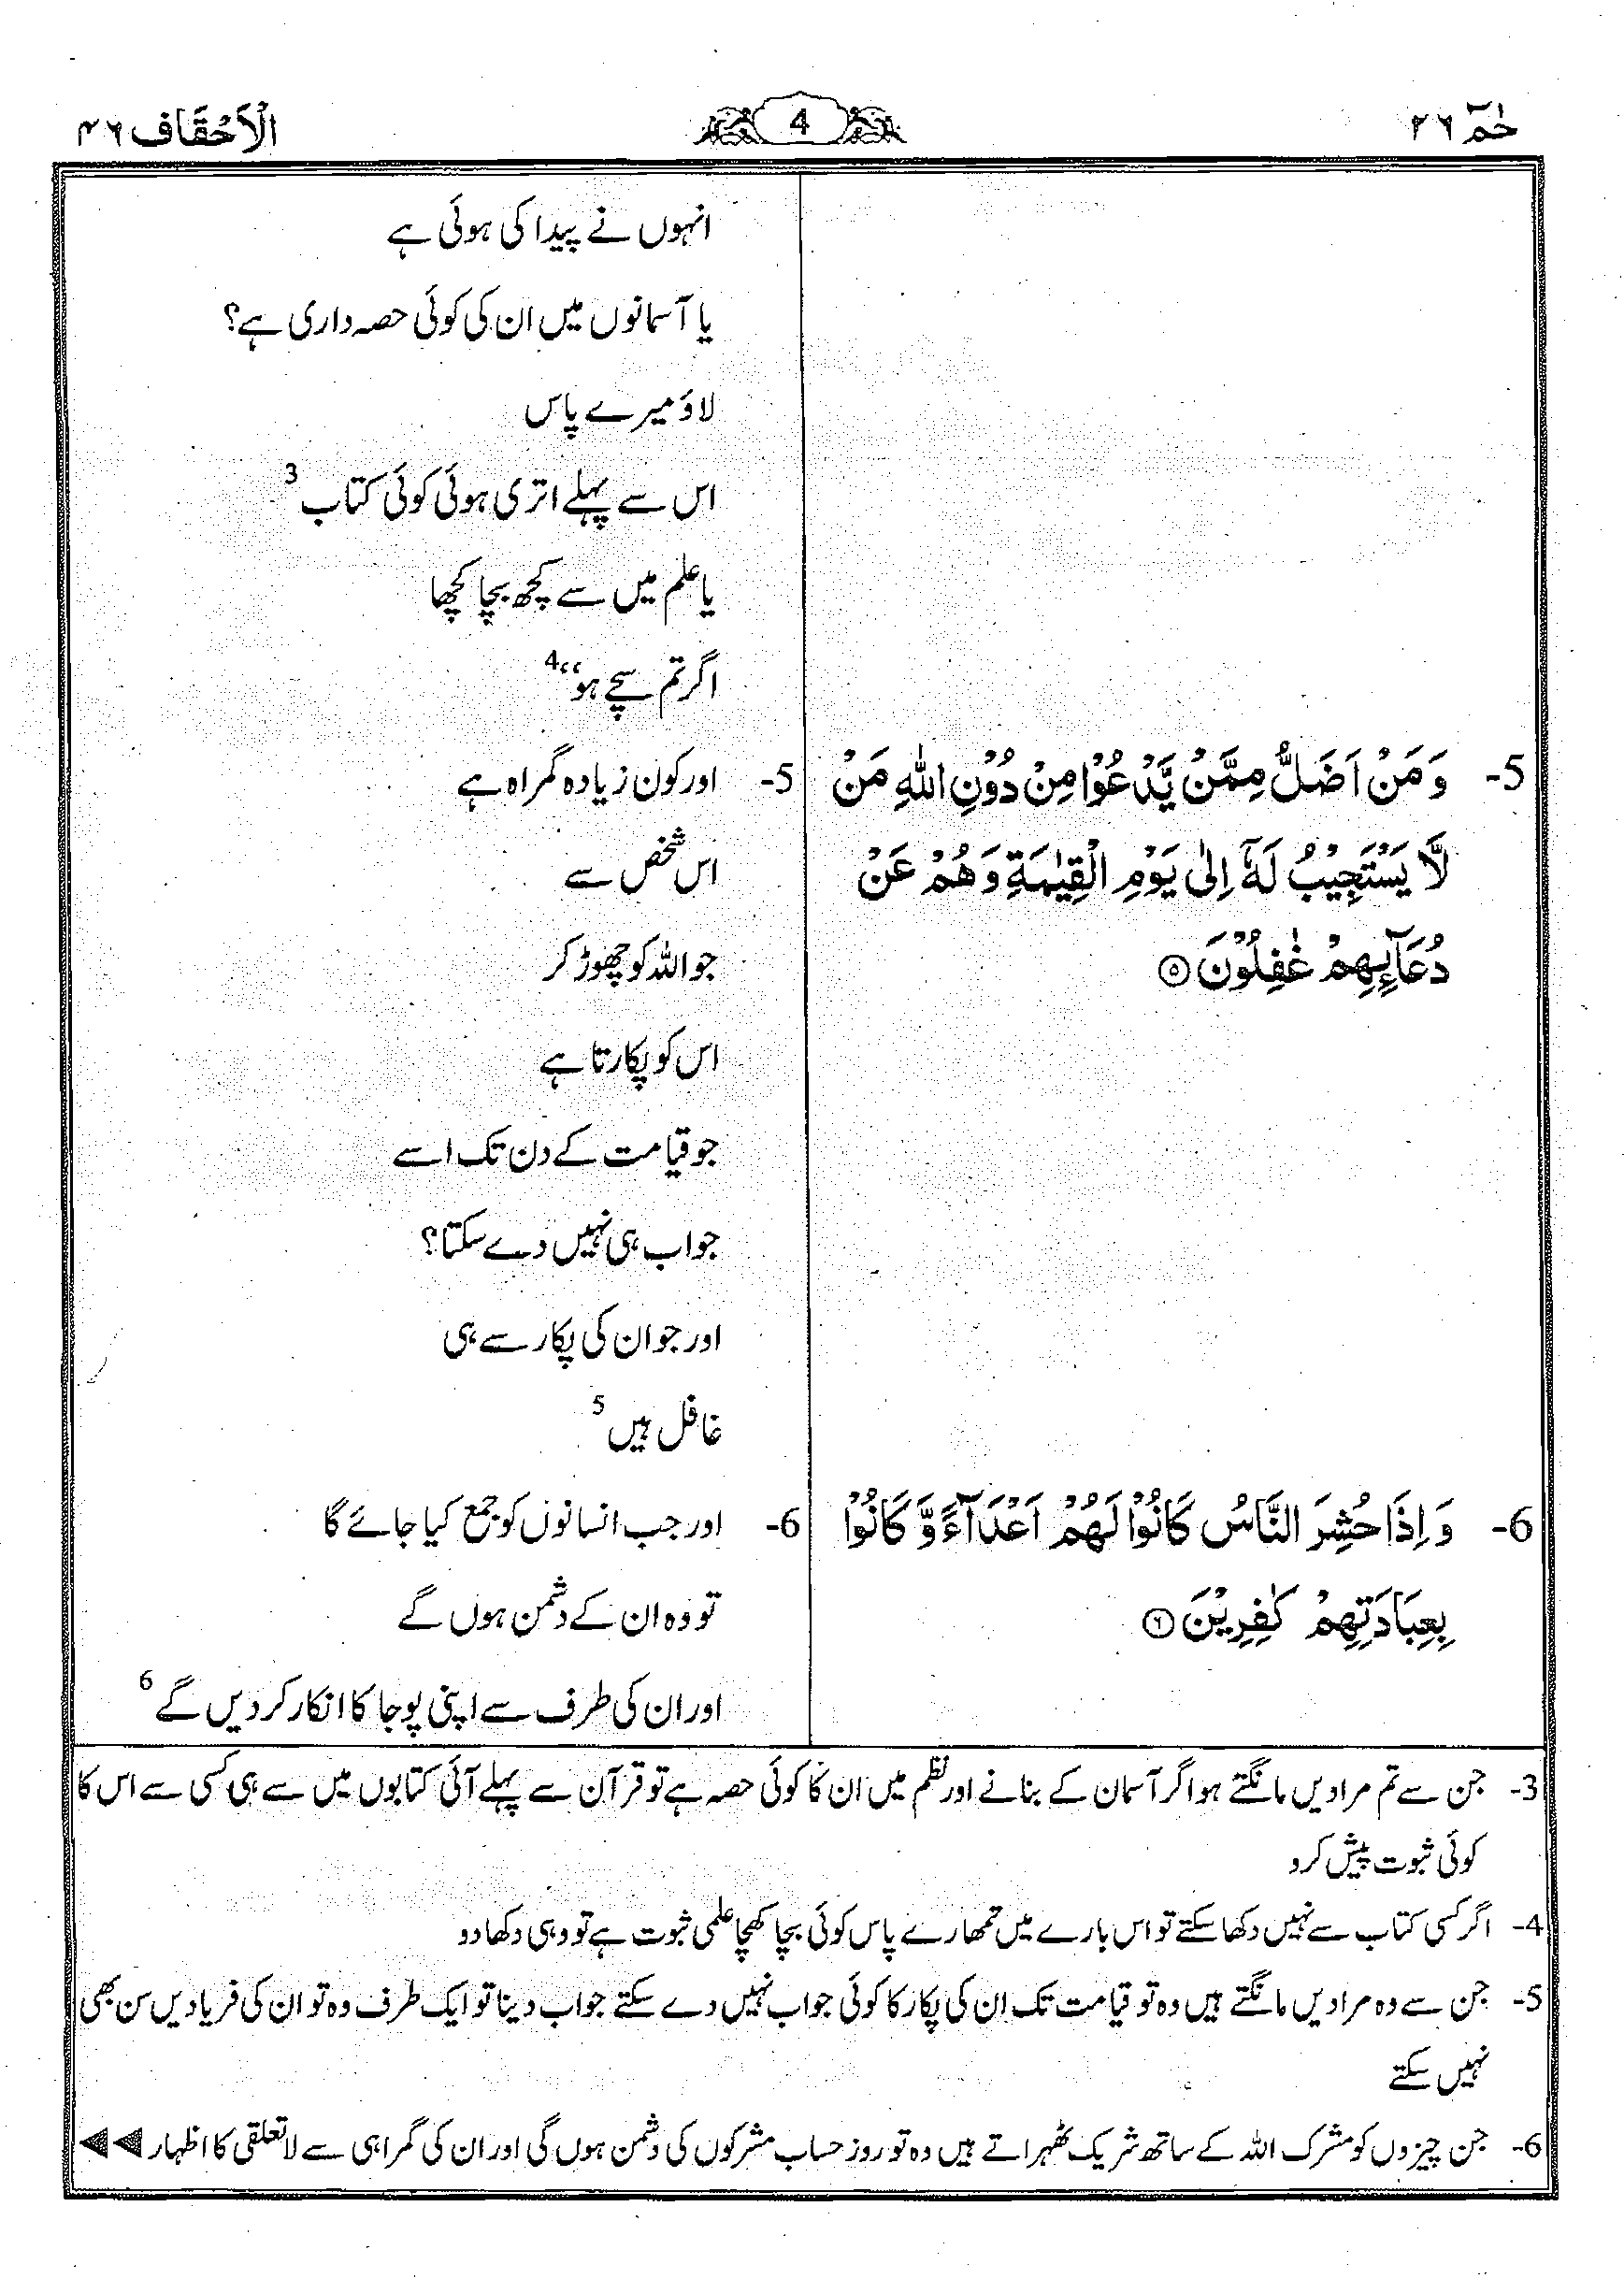 حٰمٓ ۲۶
4
الْاَحْقَاف ۴۶
انہوں نے پیدا کی ہوئی ہے
یا آسمانوں میں ان کی کوئی حصہ داری ہے؟
لاؤ میرے پاس
اس سے پہلے اتری ہوئی کوئی کتاب 3
یا علم میں سے کچھ بچا کھچا
اگر تم سچے ہو‘‘ 4
5- وَمَنْ اَضَلُّ مِمَّنْ يَّدْعُوْا مِنْ دُوْنِ اللّٰهِ مَنْ
لَّا يَسْتَجِيْبُ لَهٗٓ اِلٰى يَوْمِ الْقِيٰمَةِ وَهُمْ عَنْ
دُعَآىِٕهِمْ غٰفِلُوْنَ ۝۵
5- اور کون زیادہ گمراہ ہے
اس شخص سے
جو اللہ کو چھوڑ کر
اس کو پکارتا ہے
جو قیامت کے دن تک اسے
جواب ہی نہیں دے سکتا؟
اور جو ان کی پکار سے ہی
غافل ہیں 5
6- وَاِذَا حُشِرَ النَّاسُ كَانُوْا لَهُمْ اَعْدَآءً وَّكَانُوْا
بِعِبَادَتِهِمْ كٰفِرِيْنَ ۝۶
6- اور جب انسانوں کو جمع کیا جائے گا
تو وہ ان کے دشمن ہوں گے
اور ان کی طرف سے اپنی پوجا کا انکار کر دیں گے 6
3- جن سے تم مرادیں مانگتے ہو اگر آسمان کے بنانے اور نظم میں ان کا کوئی حصہ ہے تو قرآن سے پہلے آئی کتابوں میں سے ہی کسی سے اس کا
کوئی ثبوت پیش کرو
4- اگر کسی کتاب سے نہیں دکھا سکتے تو اس بارے میں تمھارے پاس کوئی بچا کھچا علمی ثبوت ہے تو وہی دکھا دو
5- جن سے وہ مرادیں مانگتے ہیں وہ تو قیامت تک ان کی پکار کا کوئی جواب نہیں دے سکتے جواب دینا تو ایک طرف وہ تو ان کی فریادیں سن بھی
نہیں سکتے
6- جن چیزوں کو مشرک اللہ کے ساتھ شریک ٹھہراتے ہیں وہ تو روز حساب مشرکوں کی دشمن ہوں گی اور ان کی گمراہی سے لا تعلقی کا اظہار ◀◀